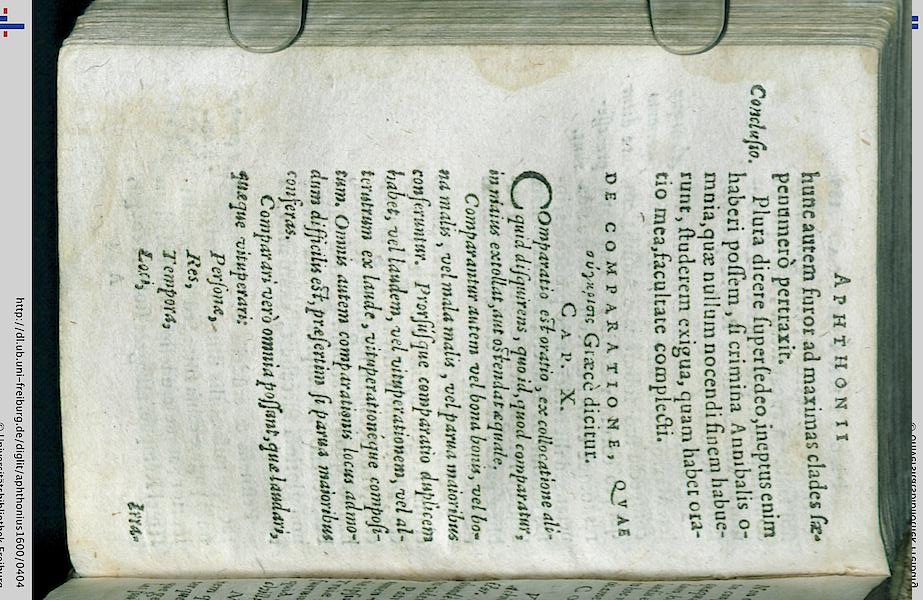 APHTHONII
hunc autem furor ad maximas clades sæ-
penumerò pertraxit.
Conclusio.
Plura dicere supersedeo, ineptus enim
haberi possem, si crimina Annibalis o-
mnia, quæ nullum nocendi finem habue-
runt, studerem exigua, quam habet ora-
tio mea, facultate complecti.
DE COMPARATIONE, QVAE
σύγκρισις Græcè dicitur.
CAP. X.
Comparatio est oratio, ex collatione ali-
quid disquirens, quo id, quod comparatur,
in maius extollat, aut ostendat æquale.
Comparantur autem vel bona bonis, vel bo-
na malis, vel mala malis, vel parua maioribus
conferuntur. Prorsúsque comparatio duplicem
habet, vel laudem, vel vituperationem, vel al-
terutrum ex laude, vituperationéque composi-
tum. Omnis autem comparationis locus admo-
dum difficilis est, præsertim si parua maioribus
conferas.
Comparari verò omnia possunt, quæ laudari,
quæque vituperari:
Personæ,
Res,
Tempora,
Loci,
http://dl.ub.uni-freiburg.de/diglit/aphthonius1600/0404
© Universitätsbibliothek Freiburg